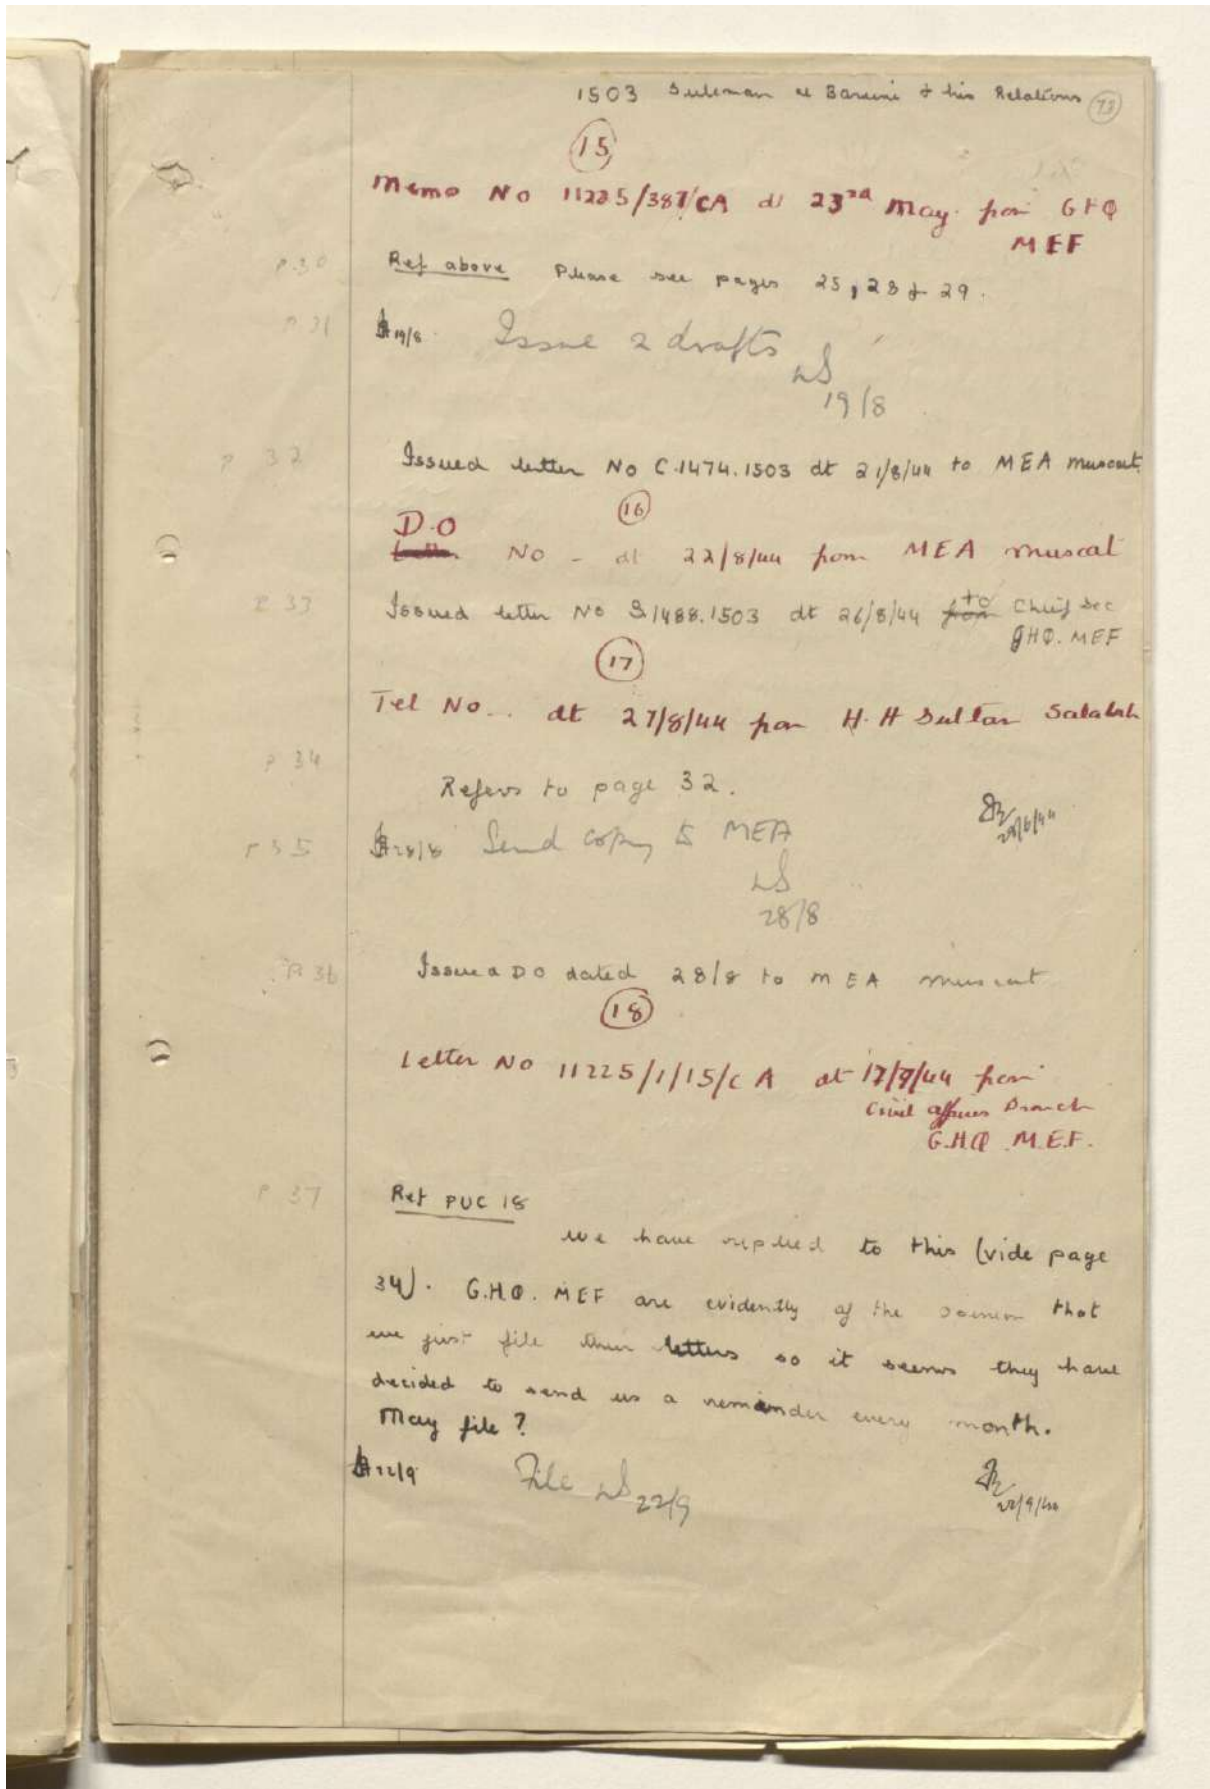 1503 Suleman al Baruni & his Relations 73
15
Memo No 11225/387/CA dt 23rd May from GHQ
MEF
P.30
Ref above Please see pages 25, 28 & 29.
P 31
19/8 Issue 2 drafts
19/8
P 32
Issued letter No C.1474.1503 dt 21/8/44 to MEA Muscat
16
D.O
Letter No - dt 22/8/44 from MEA Muscat
P 33
Issued letter No S.1488.1503 dt 26/8/44 from to Chief Sec
GHQ. MEF
17
Tel No.. dt 27/8/44 from H.H Sultan Salalah
P 34
Refers to page 32.
P 35
28/8 Send copy to MEA
28/8
P 36
Issued DO dated 28/8 to MEA Muscat
18
Letter No 11225/1/15/CA dt 17/9/44 from
Civil Affairs Branch
G.H.Q. M.E.F.
P 37
Ref PUC 18
we have replied to this (vide page
34). G.H.Q. MEF are evidently of the opinion that
we just file their letters so it seems they have
decided to send us a remainder every month.
May file?
22/9 File 22/9
22/9/44